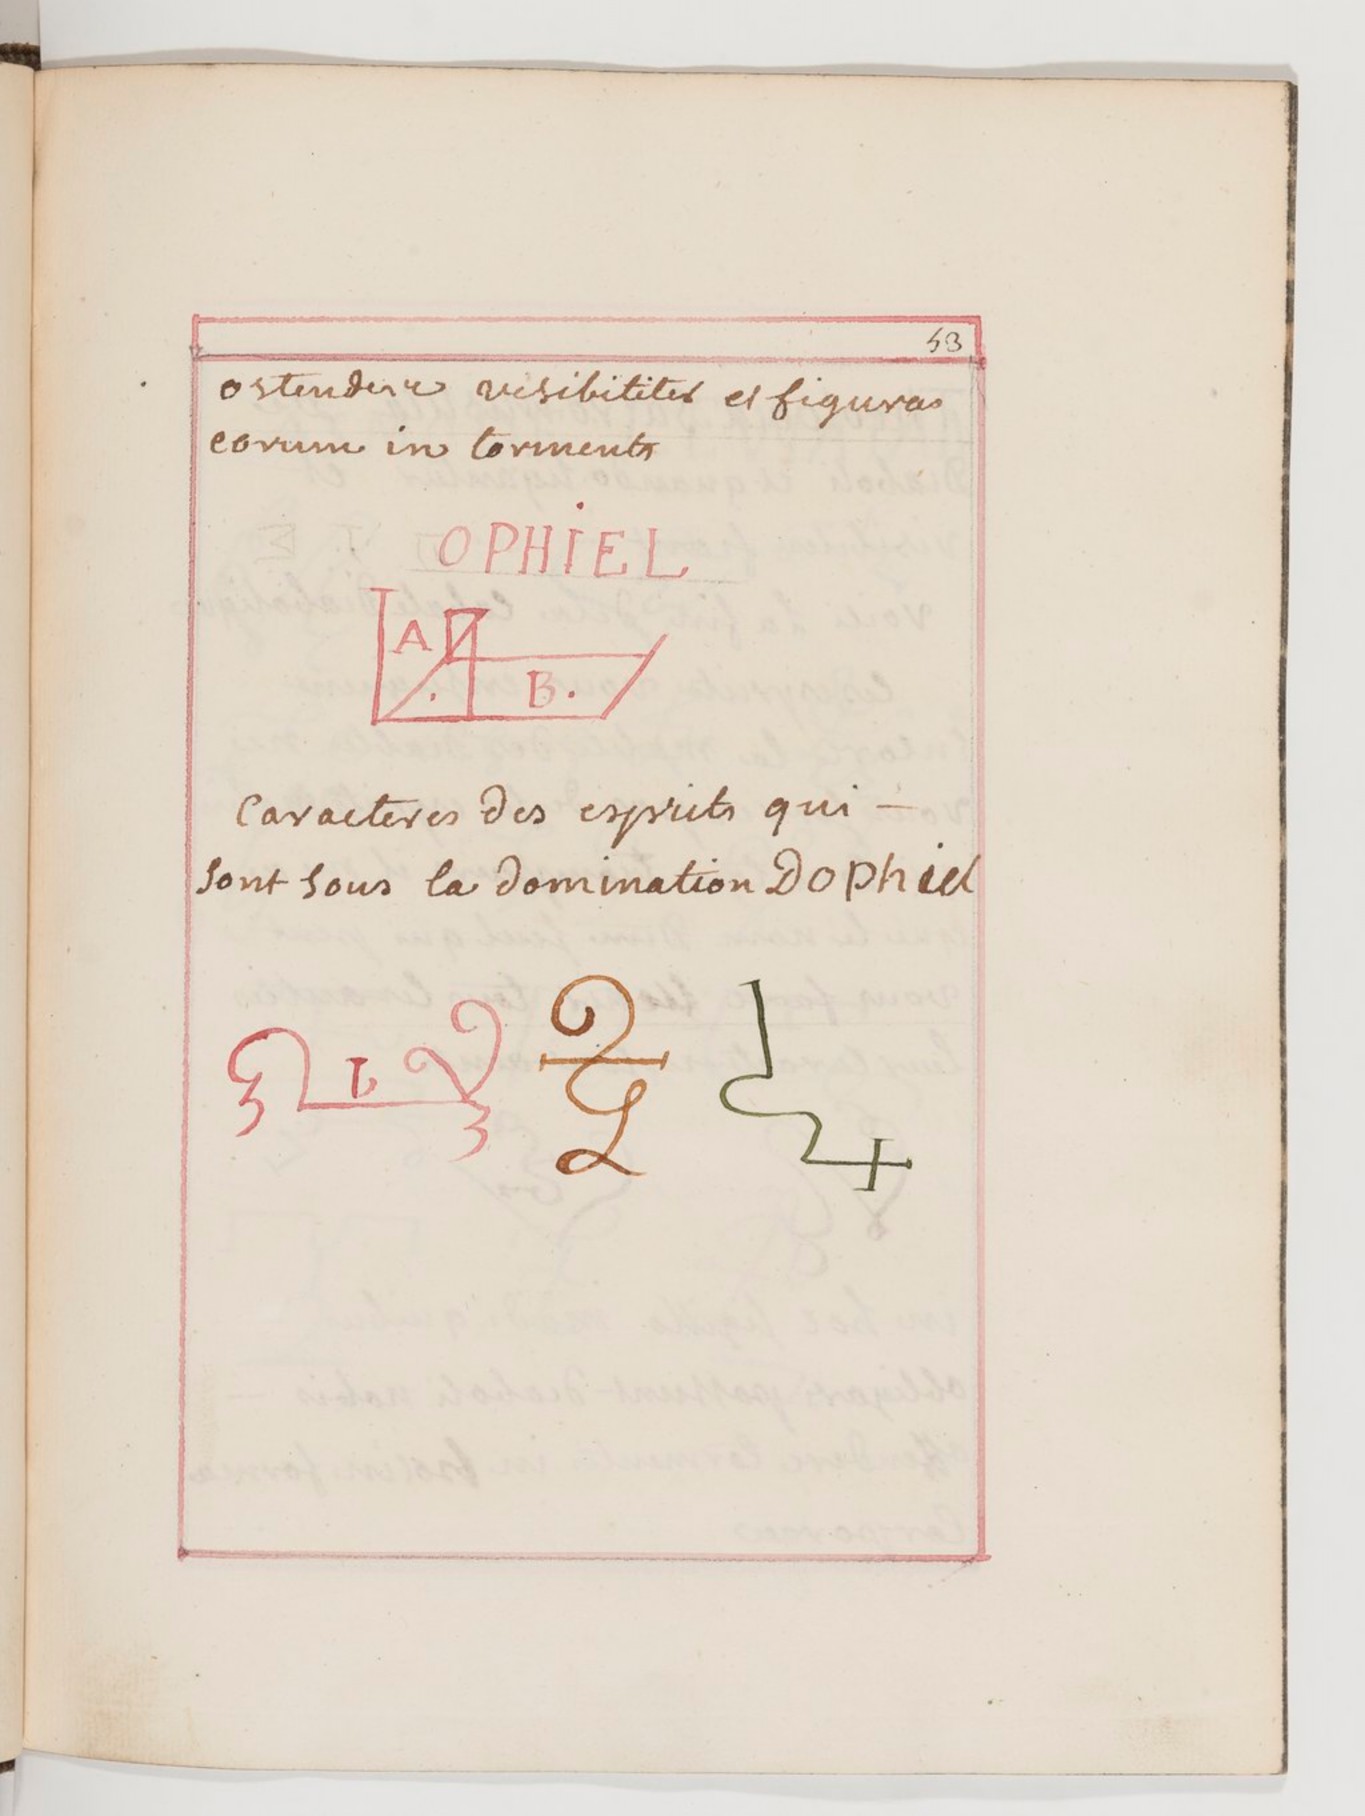 53
ostendere visibiliter et figuras
eorum in torments
OPHIEL
A
B.
Caracteres des esprits qui —
sont sous la domination Dophiel